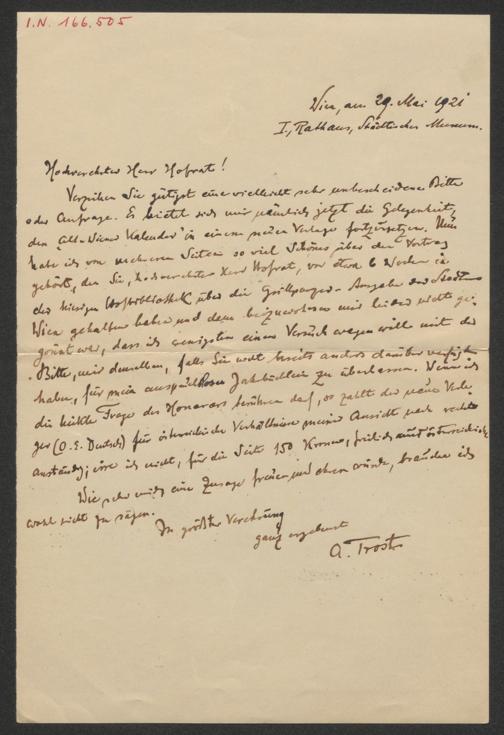 I.N. 166.505
Wien, am 29. Mai 1921
I., Rathaus, Städtisches Museum.
Hochverehrter Herr Hofrat!
Verzeihen Sie gütigst eine vielleicht sehr unbescheidene Bitte
oder Anfrage. Es bietet sich mir nämlich jetzt die Gelegenheit,
den Alt-Wiener Kalender in einem neuen Verlage fortzusetzen. Nun
habe ich von mehreren Seiten so viel Schönes über den Vortrag
gehört, den Sie, hochverehrter Herr Hofrat, vor etwa 6 Wochen in
der hiesigen Hofbibliothek über die Grillparzer-Ausgabe der Stadt
Wien gehalten haben und dem beizuwohnen mir leider nicht ge-
gönnt war, dass ich wenigstens einen Versuch wagen will mit der
Bitte, mir denselben, falls Sie nicht bereits anders darüber verfügt
haben, für mein anspruchloses Jahrbüchlein zu überlassen. Wenn ich
die heikle Frage des Honorars berühren darf, so zahlt der neue Verle-
ger (O. E. Deutsch) für österreichische Verhältnisse meiner Ansicht nach recht
anständig, irre ich nicht, für die Seite 150 Kronen, freilich österreichische
Wie sehr mich eine Zusage freuen und ehren würde, brauche ich
wohl nicht zu sagen.
In größter Verehrung
ganz ergebenst
A. Trost